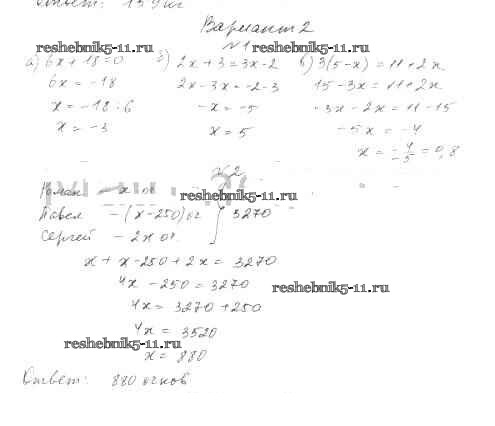 Ответ: 159 кг
Вариант 2
reshebnik5-11.ru №1 reshebnik5-11.ru
а) 6x + 18 = 0 б) 2x + 3 = 3x - 2 в) 3(5 - x) = 11 + 2x
6x = -18 2x - 3x = -2 - 3 15 - 3x = 11 + 2x
x = -18 : 6 -x = -5 -3x - 2x = 11 - 15
x = -3 x = 5 -5x = -4
x = -4/-5 = 0,8
№2
x ог. reshebnik5-11.ru
Павел - (x - 250) ог 3270
Сергей - 2x ог.
x + x - 250 + 2x = 3270
4x - 250 = 3270 reshebnik5-11.ru
4x = 3270 + 250
4x = 3520
reshebnik5-11.ru
x = 880
Ответ: 880 очков